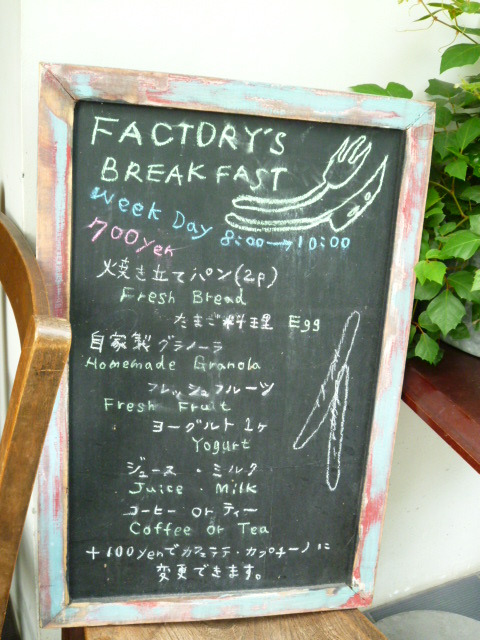 FACTORY'S
BREAKFAST
Week Day 8:00→10:00
700yen
焼き立てパン(2p)
Fresh Bread
たまご料理 Egg
自家製グラノーラ
Homemade Granola
フレッシュフルーツ
Fresh Fruit
ヨーグルト1ヶ
Yogurt
ジュース・ミルク
Juice・Milk
コーヒー or ティー
Coffee or Tea
+100yenでカフェラテ・カプチーノに
変更できます。